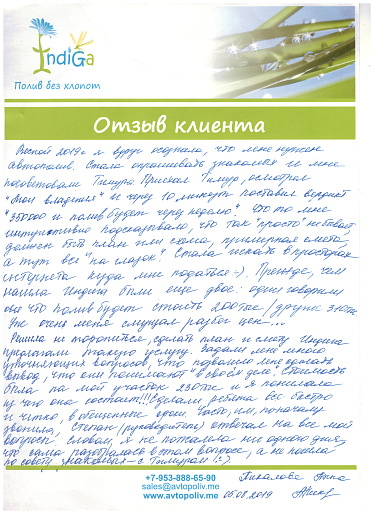 IndiGa
Полив без хлопот
Отзыв клиента
Весной 2019г я вдруг осознала, что мне нужен
автополив. Стала опрашивать знакомых и мне
посоветовали Тимура. Приехал Тимур, осмотрел
"мои владения" и через 10 минут поставил вердикт
"350000 и полив будет через неделю". Что-то мне
интуитивно подсказывало, что так "просто" не бывает
должен быть план или схема, примерная смета,
а тут всё "на глазок". Стала искать в просторах
интернета куда мне податься :-). Прежде, чем
нашла Индигу были ещё двое: одни говорили
что полив будет стоить 200тыс / другие
Уж очень меня смущал разбег цен...
Решила не торопиться, сделать план и смету. Индига
предлагали такую услугу. Задали мне много
уточняющих вопросов, что позволило мне сделать
вывод, что они понимают в своём деле. Стоимость
была на мой участок 230тыс и я понимала
из чего она состоит!!! Сделали ребята всё быстро
и чётко, в обещанные сроки. Часто им, поначалу
звонила, Степан (руководитель) отвечал на все мои
вопросы. Словом, я не пожалела ни одного дня,
что сама разобралась в этом вопросе, а не пошла
по совету знакомых - с Тимуром! :-).
+7-953-888-65-90
sales@avtopoliv.me
www.avtopoliv.me
Анна
05.08.2019